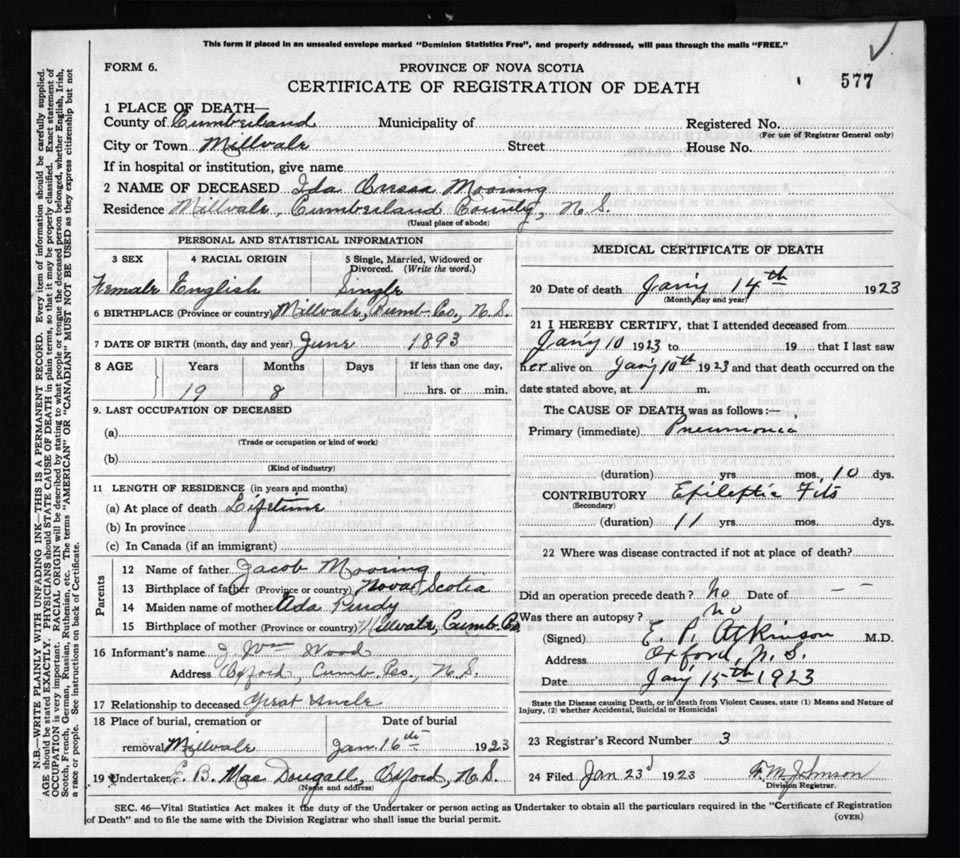 This form if placed in an unsealed envelope marked "Dominion Statistics Free", and properly addressed, will pass through the mails "FREE."
FORM 6.
PROVINCE OF NOVA SCOTIA
577
CERTIFICATE OF REGISTRATION OF DEATH
1 PLACE OF DEATH—
County of Cumberland Municipality of Registered No.
(For use of Registrar General only)
City or Town Millvale Street House No.
If in hospital or institution, give name
2 NAME OF DECEASED Ida Mooring
Residence Millvale, Cumberland County, N.S.
(Usual place of abode)
PERSONAL AND STATISTICAL INFORMATION
3 SEX 4 RACIAL ORIGIN 5 Single, Married, Widowed or Divorced. (Write the word.)
Female English Single
6 BIRTHPLACE (Province or country) Millvale, Cumb. Co., N.S.
7 DATE OF BIRTH (month, day and year) June 1893
8 AGE Years Months Days If less than one day,
19 8 hrs. or min.
9. LAST OCCUPATION OF DECEASED
(a)
(Trade or occupation or kind of work)
(b)
(Kind of industry)
11 LENGTH OF RESIDENCE (in years and months)
(a) At place of death Lifetime
(b) In province
(c) In Canada (if an immigrant)
Parents
12 Name of father Jacob Mooring
13 Birthplace of father (Province or country) Nova Scotia
14 Maiden name of mother Ada Purdy
15 Birthplace of mother (Province or country) Millvale, Cumb. Co
16 Informant's name J. Wm Wood
Address Oxford, Cumb. Co., N.S.
17 Relationship to deceased Great Uncle
18 Place of burial, cremation or removal Millvale
Date of burial Jan. 16th 1923
19 Undertaker B. MacDougall, Oxford, N.S.
(Name and address)
MEDICAL CERTIFICATE OF DEATH
20 Date of death Jan'y 14th 1923
(Month, day and year)
21 I HEREBY CERTIFY, that I attended deceased from
Jan'y 10 1923 to 19 that I last saw
her alive on Jan'y 10th 1923 and that death occurred on the
date stated above, at m.
The CAUSE OF DEATH was as follows:—
Primary (immediate) Pneumonia
(duration) yrs. mos. 10 dys.
CONTRIBUTORY Epileptic Fits
(Secondary)
(duration) 11 yrs. mos. dys.
22 Where was disease contracted if not at place of death?
Did an operation precede death? No Date of —
Was there an autopsy? No
(Signed) E. P. Atkinson M.D.
Address Oxford, N.S.
Date Jan'y 15th 1923
State the Disease causing Death, or in death from Violent Causes, state (1) Means and Nature of
Injury, (2) whether Accidental, Suicidal or Homicidal
23 Registrar's Record Number 3
24 Filed Jan 23d 1923 F. M. Johnson
Division Registrar.
SEC. 46—Vital Statistics Act makes it the duty of the Undertaker or person acting as Undertaker to obtain all the particulars required in the "Certificate of Registration
of Death" and to file the same with the Division Registrar who shall issue the burial permit.
(OVER)
N.B.—WRITE PLAINLY WITH UNFADING INK—THIS IS A PERMANENT RECORD. Every item of information should be carefully supplied.
AGE should be stated EXACTLY. PHYSICIANS should STATE CAUSE OF DEATH in plain terms, so that it may be properly classified. Exact statement of
OCCUPATION is very important. RACIAL ORIGIN will be described by stating to what people or tongue the deceased person belonged, whether English, Irish,
Scotch, French, German, Russian, Ruthenian, etc. The terms "AMERICAN" OR "CANADIAN" MUST NOT BE USED as they express citizenship but not
a race or people. See instructions on back of Certificate.